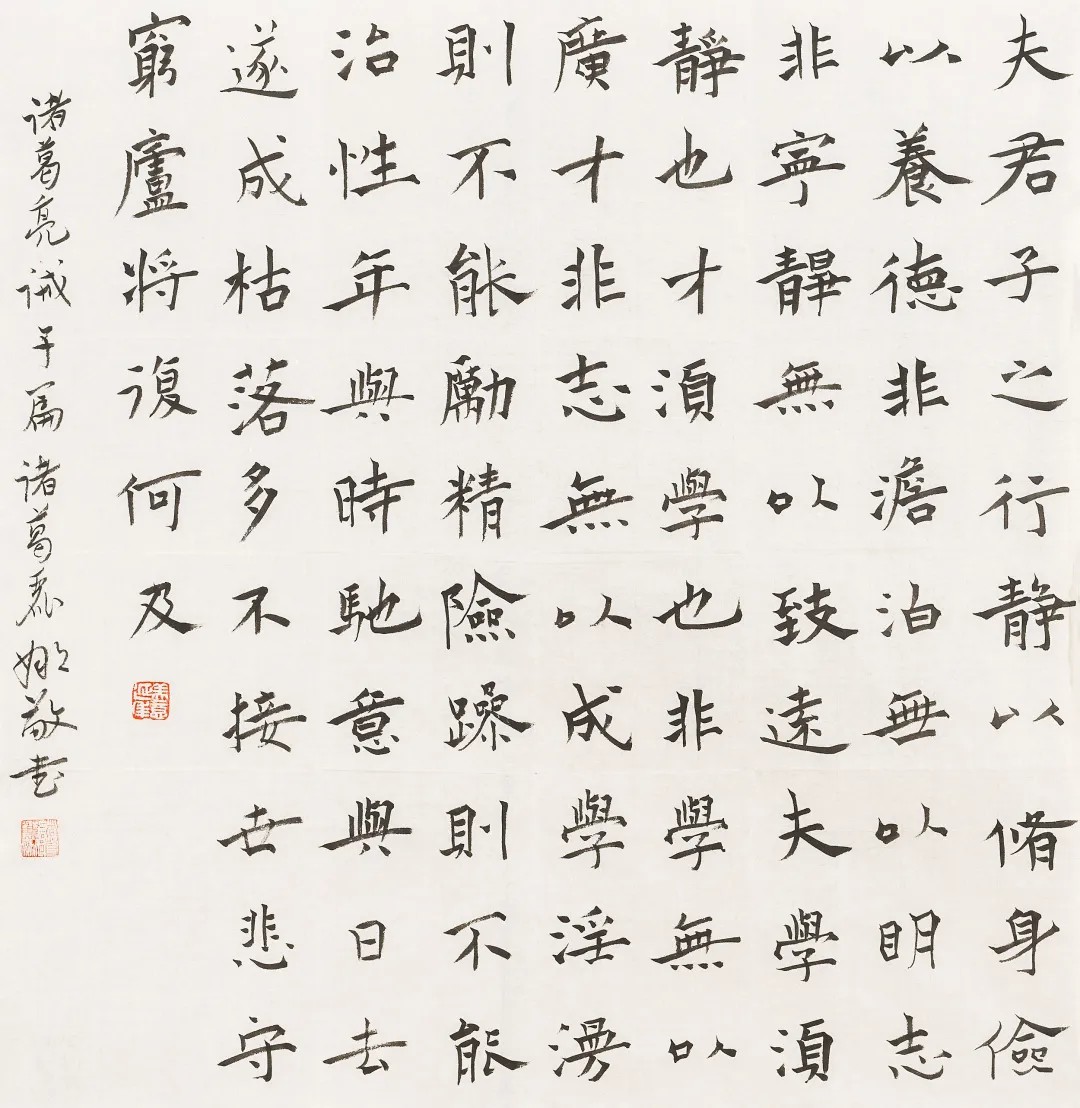 夫君子之行靜以脩身儉
以養德非澹泊無以明志
非寧靜無以致遠夫學須
靜也才須學也非學無以
廣才非志無以成學淫漫
則不能勵精險躁則不能
治性年與時馳意與日去
遂成枯落多不接世悲守
窮廬將復何及
诸葛亮诫子篇诸葛麗娜敬书